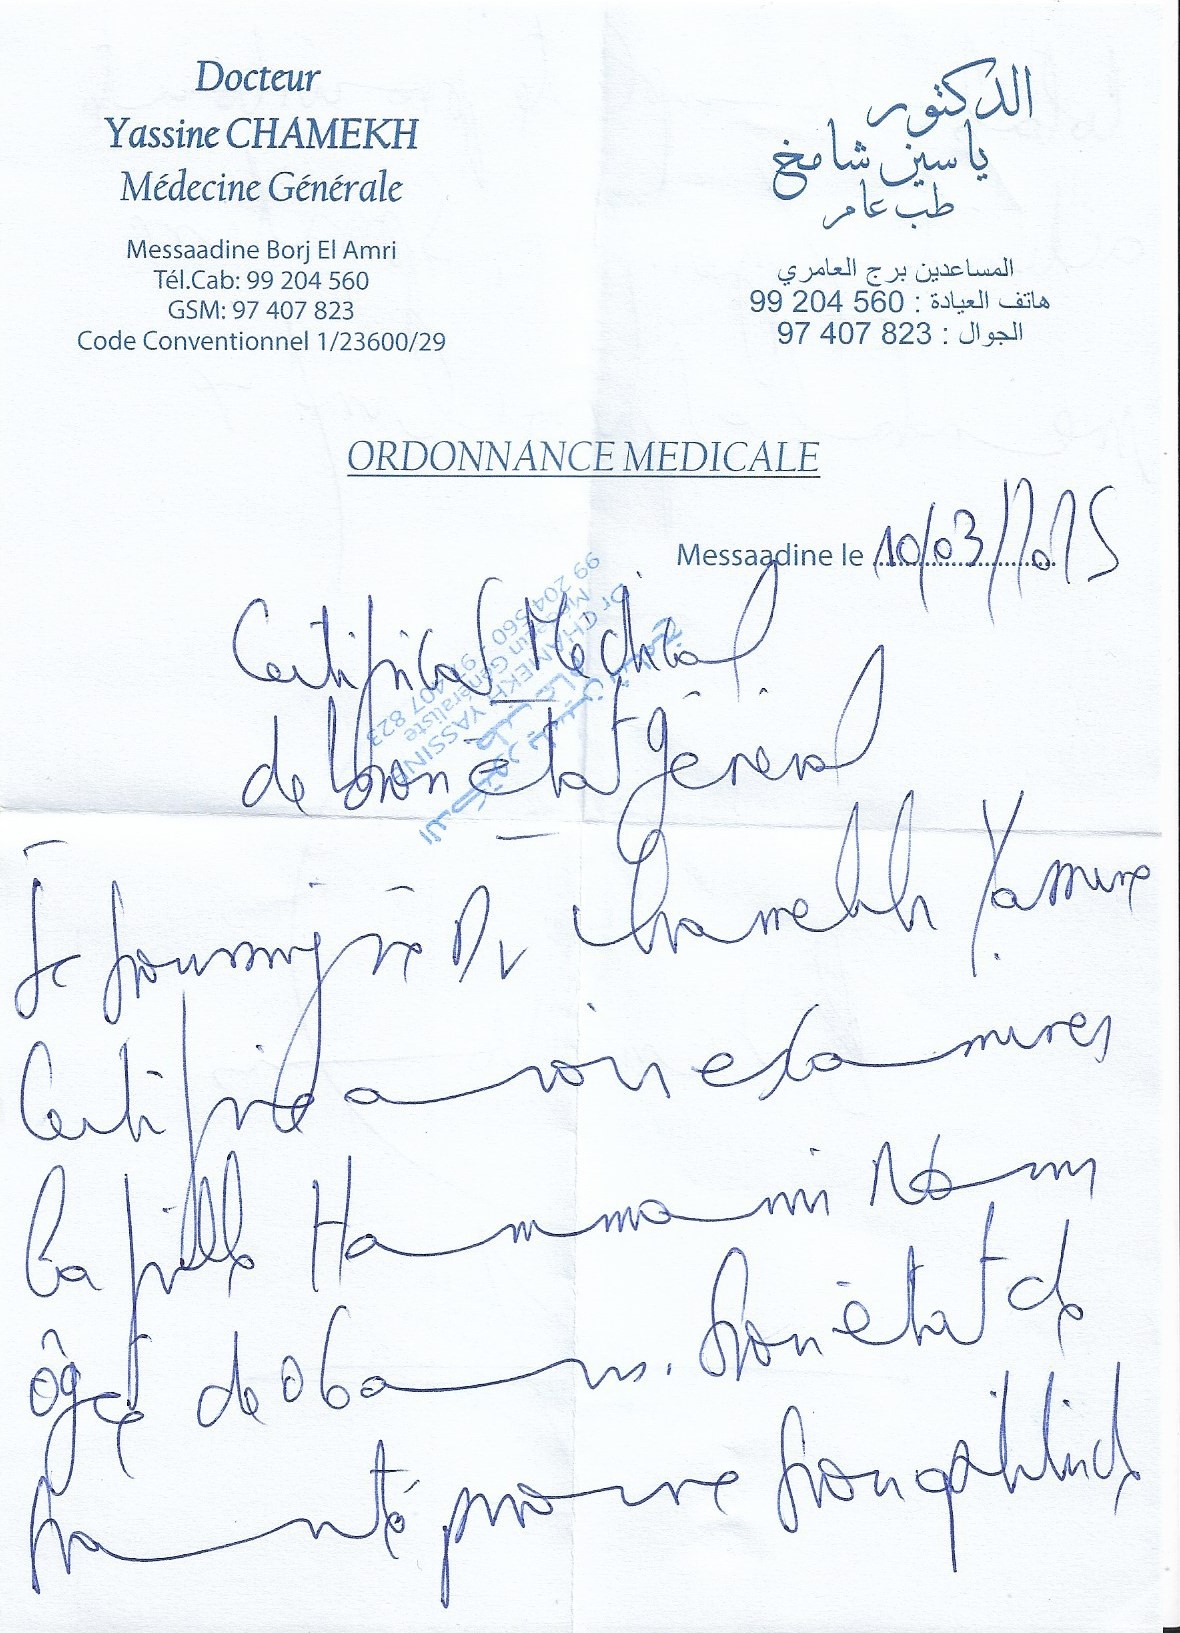 Docteur
Yassine CHAMEKH
Médecine Générale
Messaadine Borj El Amri
Tél.Cab: 99 204 560
GSM: 97 407 823
Code Conventionnel 1/23600/29
الدكتور
ياسين شامخ
طب عام
المساعدين برج العامري
هاتف العيادة : 560 204 99
الجوال : 823 407 97
ORDONNANCE MEDICALE
Messaadine le 10/03/2015
Certificat Médical
de bon état général
Dr CHAMEKH YASSINE
Médecin Généraliste
99 204 560 - 97 407 823
Je soussigné Dr Chamekh Yassine
Certifie avoir examiner
la fille Hammami
âgée de 06 ans. bon état de
santé